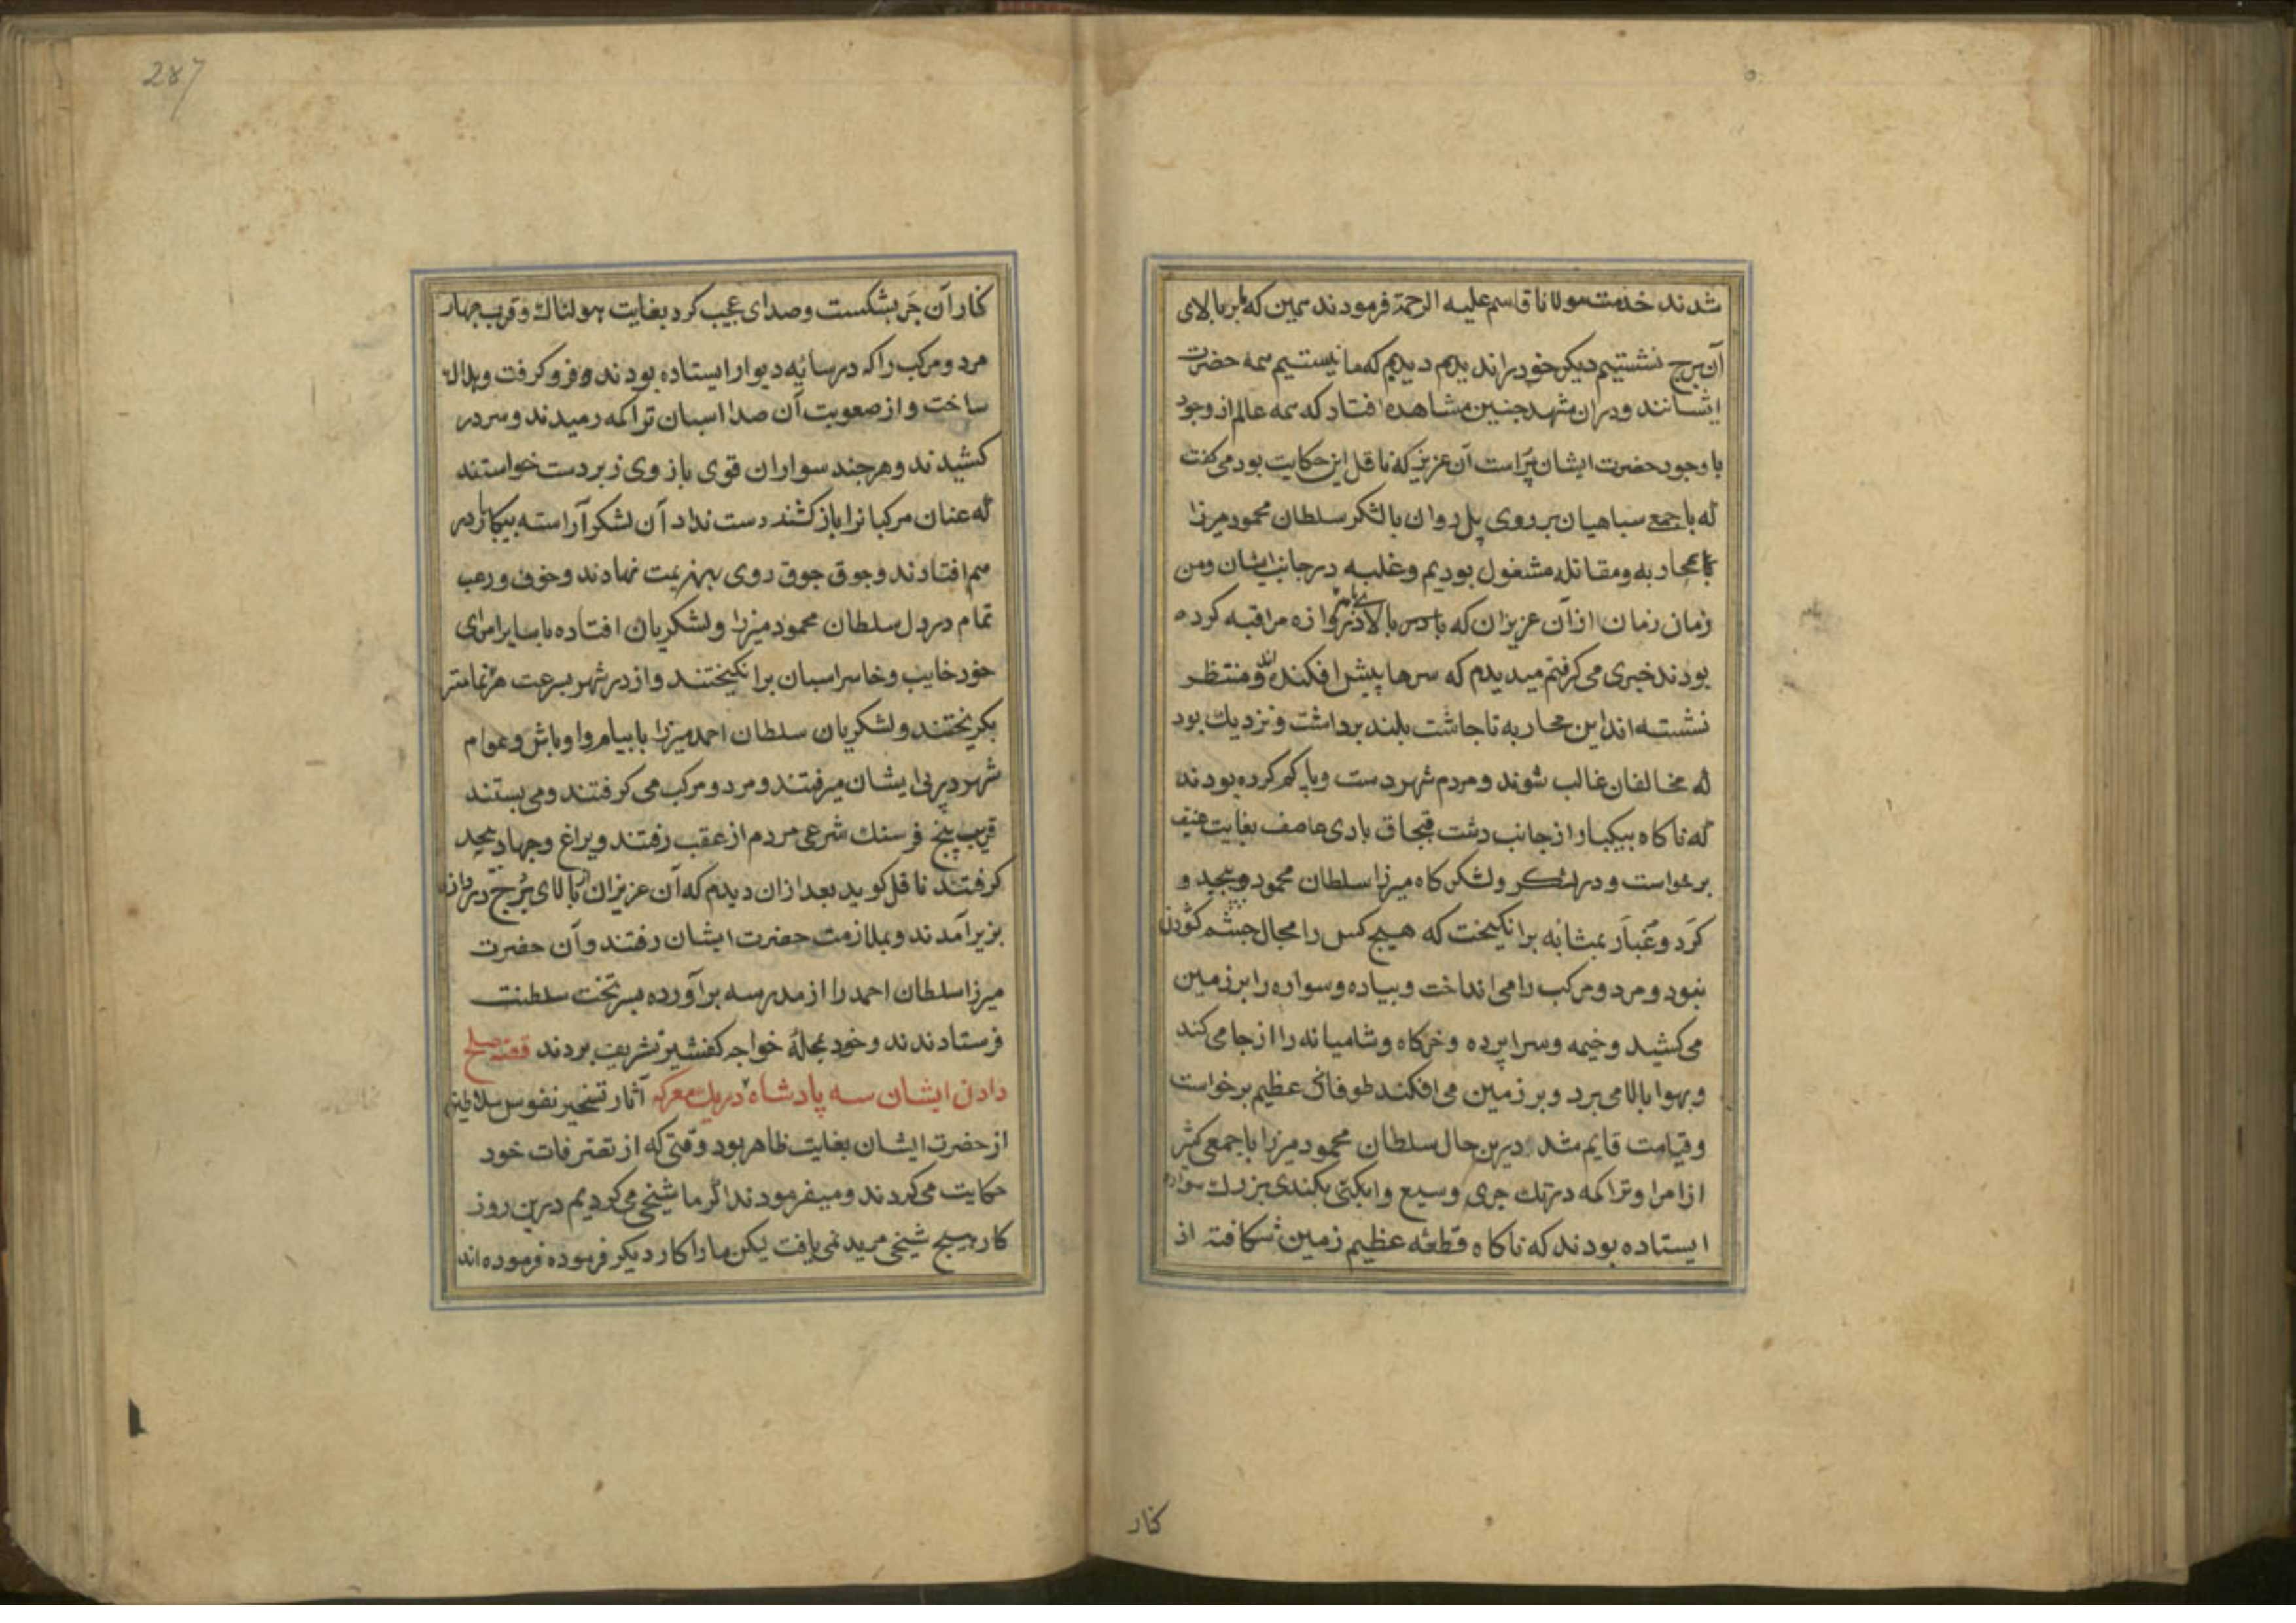 شدند خدمت مولانا قاسم علیه الرحمة فرمودند همین که ما بر بالای
آن برج نشستیم دیکر خود را ندیدیم دیدیم که ما نیستیم همه حضرت
ایشانند و دران مشهد جنین مشاهده افتاد که همه عالم از وجود
با وجود حضرت ایشان پراست آن عزیز که ناقل این حکایت بود می کفت
که با جمع سباهیان بر روی پل روان با لشکر سلطان محمود میرزا
بمحاربه و مقاتله مشغول بودیم و غلبه در جانب ایشان و من
زمان زمان ازان عزیزان که بالای دروازه مراقبه کرده
بودند خبری می کرفتم میدیدم که سرها پیش افکنده اند و منتظر
نشسته اند این محاربه تا جاشت بلند برداشت و نزدیك بود
که مخالفان غالب شوند و مردم شهر دست و پا کم کرده بودند
که ناکاه بیکبار از جانب دشت قبجاق بادی عاصف بغایت عنیف
برخواست و در لشکر و لشکرکاه میرزا سلطان محمود پیجید و
کرد و غبار بمثابه برانکیخت که هیج کس را مجال جشم کشودن
نبود و مرد و مرکب را می انداخت و بیاده و سواره را بر زمین
می کشید و خیمه و سراپرده و خرکاه و شامیانه را از جا می کند
و بهوا بالا می برد و بر زمین می افکند طوفانی عظیم برخواست
و قیامت قایم شد درین حال سلطان محمود میرزا با جمعی کثیر
از امرا و تراکمه در تك جری وسیع و ابکی بکندی بزرك سواره
ایستاده بودند که ناکاه قطعه عظیم زمین شکافته از
کنار
287
کنار آن جر بشکست و صدای عجیب کرد بغایت هولناك و قریب جهار
مرد و مرکب را که در سایه دیوار ایستاده بودند فرو کرفت و هلاك
ساخت و از صعوبت آن صدا اسبان تراکمه رمیدند و سر در
کشیدند و هرجند سواران قوی بازوی زبردست خواستند
که عنان مرکبانرا باز کشند دست نداد آن لشکر آراسته بیکبار در
هم افتادند و جوق جوق روی بهزیمت نهادند و خوف و رعب
تمام در دل سلطان محمود میرزا و لشکریان افتاده با سایر امرای
خود خایب و خاسر اسبان برانکیختند و از در شهر بسرعت هر تمامتر
بکریختند و لشکریان سلطان احمد میرزا با بیام و اوباش و عوام
شهر در پی ایشان میرفتند و مرد و مرکب می کرفتند و می بستند
قریب پنج فرسنك شرعی مردم از عقب رفتند و یراغ و جهاد بیحد
کرفتند ناقل کوید بعد ازان دیدم که آن عزیزان از بالای برج دروازه
بزیر آمدند و بملازمت حضرت ایشان رفتند و آن حضرت
میرزا سلطان احمد را از مدرسه برآورده بر تخت سلطنت
فرستادند و خود بمحلۀ خواجه کفشیر تشریف بردند قصه صلح
دادن ایشان سه پادشاه در یك معرکه آثار تسخیر نفوس سلاطین
از حضرت ایشان بغایت ظاهر بود وقتی که از تصرفات خود
حکایت می کردند و میفرمودند اکر ما شیخی می کردیم درین روز
کار هیج شیخی مرید نمی یافت لیکن ما را کار دیکر فرموده فرموده اند